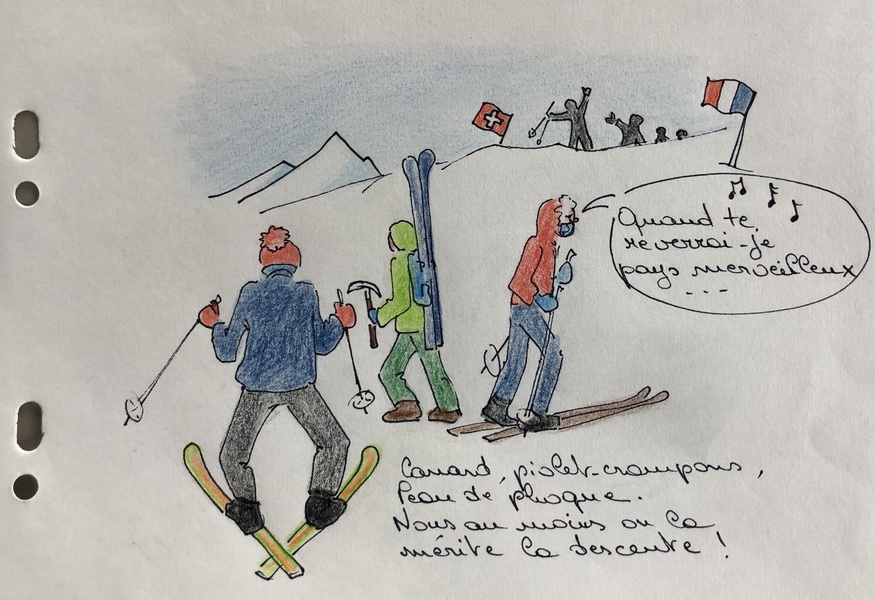 Quand te
reverrai-je
pays merveilleux
...
Canard, piolet-crampons,
Peau de phoque.
Nous au moins on la
mérite la descente !